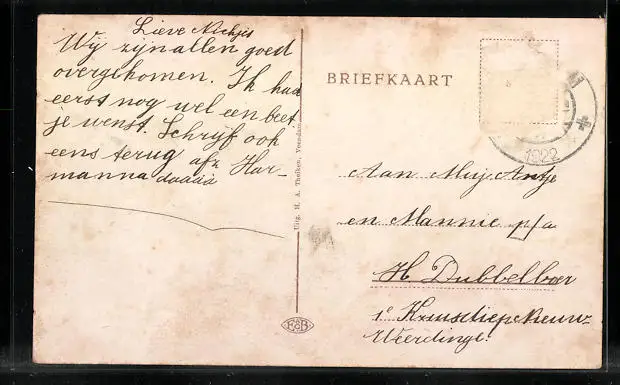 Lieve Nichjes
Wij zijn allen goed
overgekomen. Ik had
eerst nog wel een beet
je wenst. Schrijf ook
eens terug afz Har-
manna daaaa
Uitg. H. A. Theiken, Veendam.
BRIEFKAART
1922
Aan Mej Antje
en Mannie p/a
H. Dubbelboer
Nieuw-
Weerdinge.